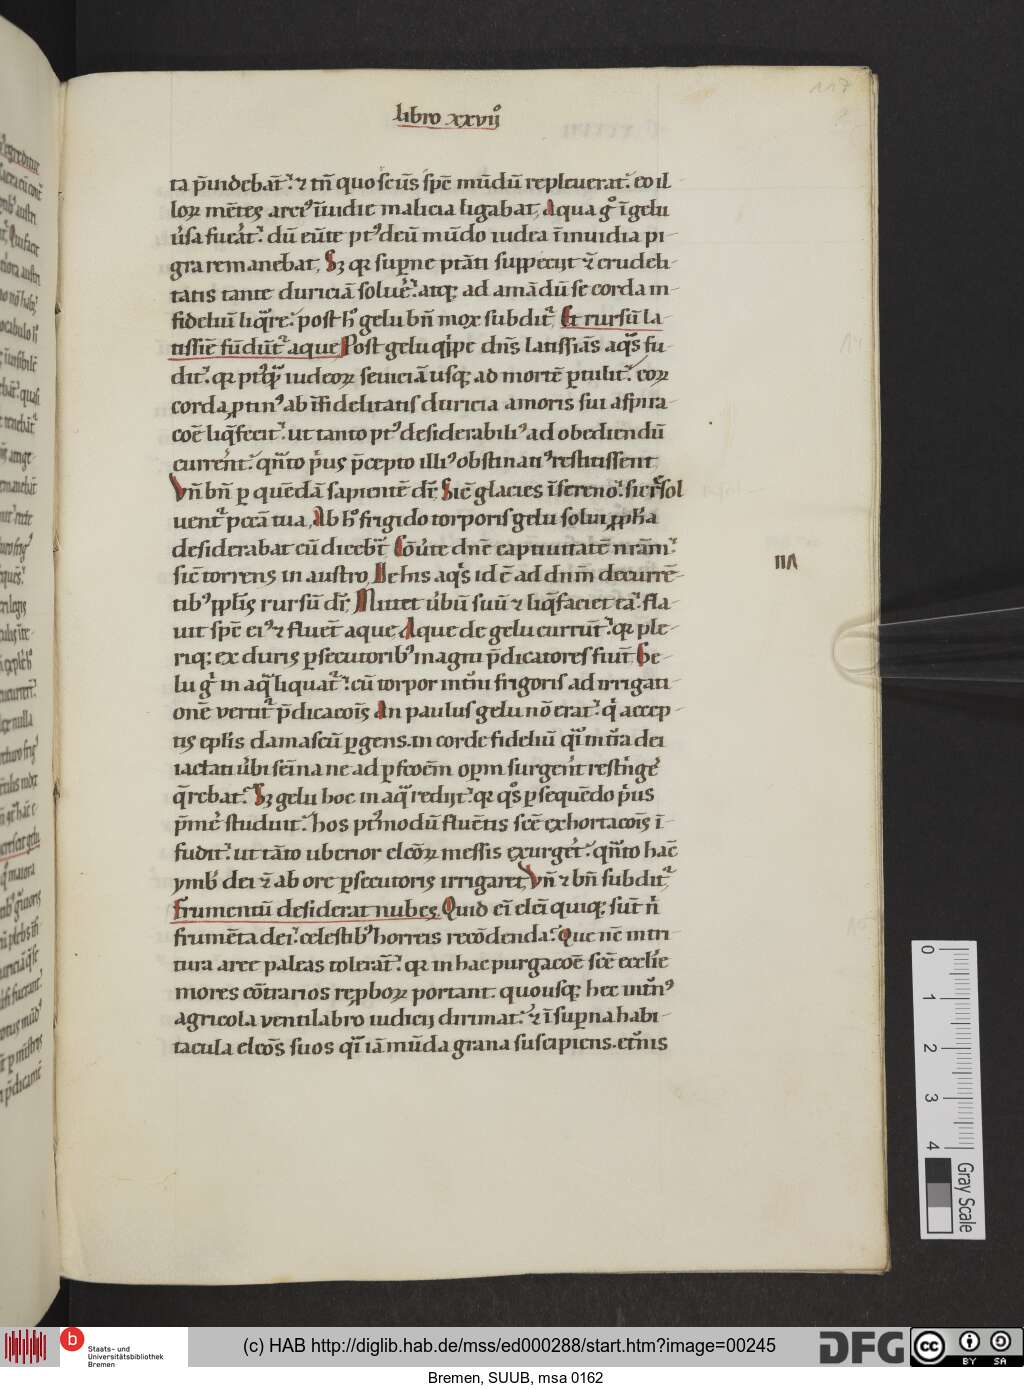 117
libro xxvij°
ta p̄uidebat᷑. ⁊ tn̄ quo sc̄us sp̄e mūdū repleuerat᷑. eo il
loꝝ mētes arcꝰ īuidie malicia ligabat, Aqua gͦ ī gelu
ūsa fuāt᷑. dū eūte ptꝰ deū mūdo iudea ī inuidia pi
gra remanebat, Sꝫ qꝛ suꝑne ptāti suppecijt ⁊̄ crudeli
tatis tante duriciā soluē᷑. atqꝫ ad amādū se corda in
fideliū liq̄re᷑. post hͦ gelu bn̄ mox subdit᷑, Et rursū la
tissīe fūdūt᷑ aque Post gelu qͥpe dn̄s latissiās aqͣs fu
dit᷑. qꝛ ptqͣ̄ iudeoꝝ seuiciā usqꝫ ad mortē ꝑtulit᷑. eoꝝ
corda ꝓtinꝰ ab īfidelitatis duricia amoris sui aspira
coē liq̄fecit᷑. ut tanto ptꝰ desiderabiliꝰ ad obediendū
currēt᷑. qn̄to pͥus p̄cepto illiꝰ obstinatiꝰ restitissent
Vn̄ bn̄ ꝑ quēdā sapientē dr̄, Sic̄ glacies ī sereno᷑. sic r̄sol
uent᷑ pcc̄a tua, Ab hͦ frigido torporis gelu solui ꝓph̄a
desiderabat cū dicebt̄ Cōūte dnē captiuitatē nrām᷑
sic̄ torrens in austro, De his aqͥs id ē ad dnm̄ decurrē
tibꝰ ꝓplīs rursū dr̄, Mittet ūbū suū ⁊ liq̄faciet ea᷑. fla
uit spē eiꝰ ⁊ fluēt aque Aque de gelu currūt᷑. qꝛ ple
riqꝫ ex duris ꝑsecutoribꝰ magni p̄dicatores fiūt᷑, Ge
lu gͦ in aqͣ̄ liquat᷑᷑. cū torpor int̄ni frigoris ad irrigati
onē vertit᷑ p̄dicacoīs An paulus gelu nō erat᷑. qͥ accep
tis eplīs damascū ꝑgens. in corde fideliū qͣ̄i in tr̄a dei
iactati ūbi sēīna ne ad ꝑfcoēm oꝑm surgēt restīgē᷑
q̄rebat᷑. Sꝫ gelu hoc in aqͣ̄ redijt᷑. qꝛ qͦs ꝑsequēdo pͥus
p̄mē᷑ studuit᷑. hos ptͥmodū fluētis scē exhortacoīs ī
fudit᷑. ut tāto uberior elcōꝝ messis exurgēt᷑. qn̄to hāc
ymbr̄ dei ⁊̄ ab ore ꝑsecutoris irrigaret, Vn̄ ⁊ bn̄ subdit᷑
Frumentū desiderat nubes, Quid eī elcī quiqꝫ sūt nͥ
frumēta dei᷑. celestibꝰ horreis recōdenda᷑. Que nc̄ in tri
tura aree paleas tolerāt᷑. qꝛ in hac purgacoē scē ecclīe
mores cōtrarios rep̱boꝝ portant. quousqꝫ hec int̄nꝰ
agricola ventilabro iudicij dirimat᷑. ⁊ ī suꝑna habi
tacula elcōs suos qͣ̄i iā mūda grana suscipiens. et̄nis
VII
0
1
2
3
4
Gray Scale
b
Staats- und
Universitätsbibliothek
Bremen
(c) HAB http://diglib.hab.de/mss/ed000288/start.htm?image=00245
DFG
cc
BY SA
Bremen, SUUB, msa 0162